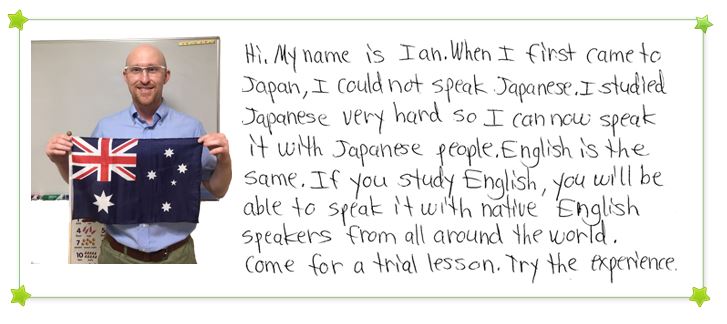 Hi. My name is Ian. When I first came to
Japan, I could not speak Japanese. I studied
Japanese very hard so I can now speak
it with Japanese people. English is the
same. If you study English, you will be
able to speak it with native English
speakers from all around the world.
Come for a trial lesson. Try the experience.
4
7
10